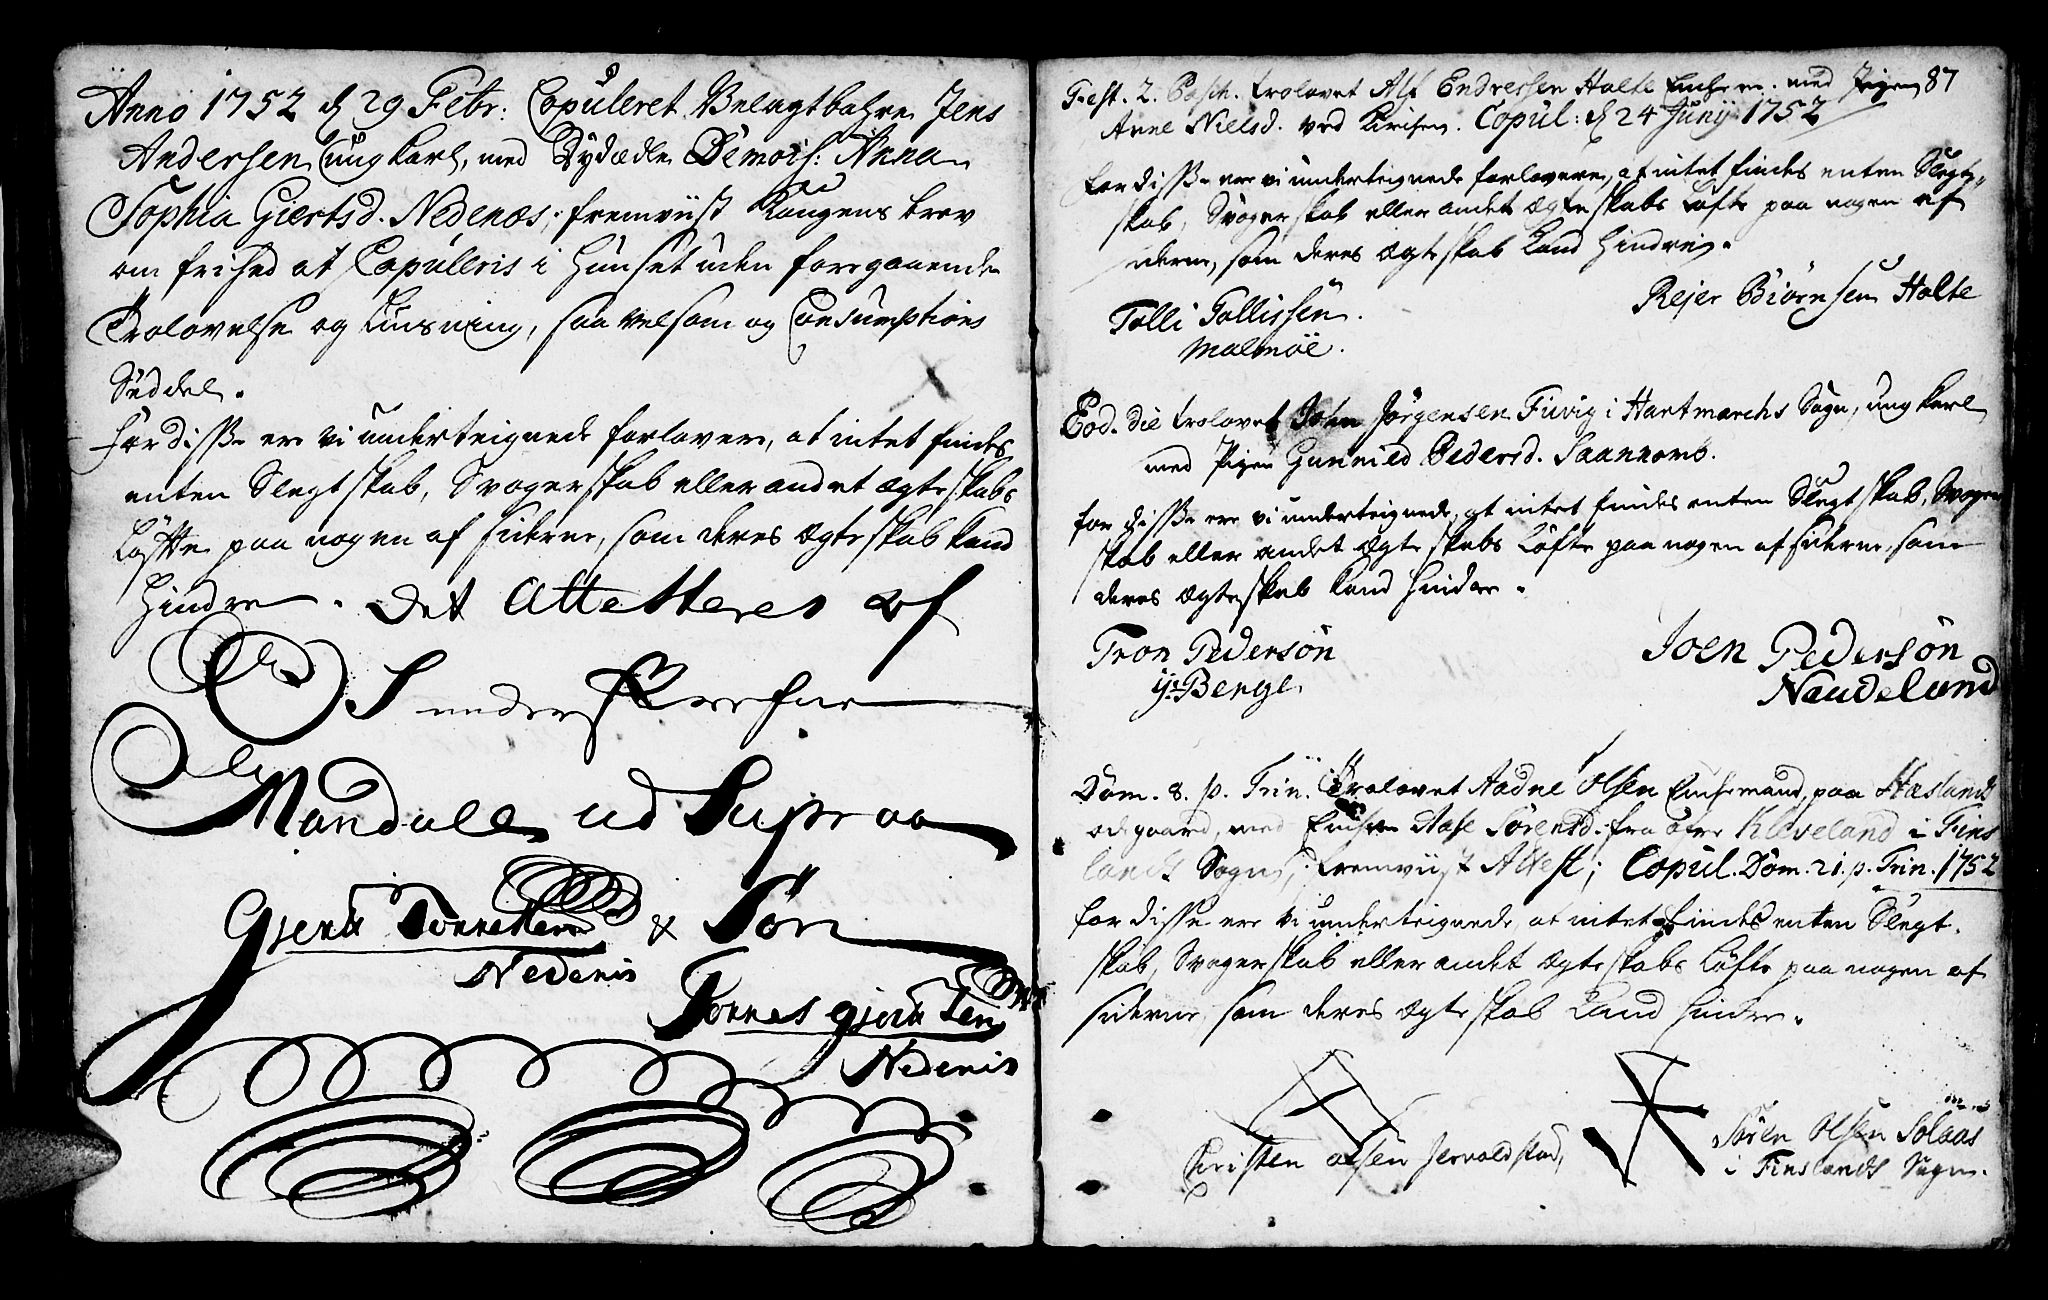 Anno 1752 d 29 Febr: Copuleret Velagtbahre Jens
Andersen Ung Karl, med Dydædle Demois: Anna
Sophia Giertsd. Nedenæs; fremviist Kongens brev
om frihed at Copuleris i Huuset uden foregaaende
Trolovelse og Liusning, saavelsom og Consumptions
Seddel.
For disse ere vi underteignede forlovere, at intet findes
enten Slegtskab, Svogerskab eller andet ægteskabs
Løffte paa nogen af siderne, som deres Ægteskab kand
hindre. Det Attesteres af
Mandall ud Supraa
Gjert Tønnesen & Søn
Nedenis
Tønnes Gjertsen
Nedenis
87
Fest. 2. Pasch. trolovet Alf Endressen Holte Enchem. med Pigen
Anne Nielsd. ved Kirchen. Copul: d 24 Junij 1752
for disse ere vi underteignede forlovere, at intet findes enten Slegt-
skab, Svogerskab eller andet ægteskabs Løfte paa nogen af
siderne, som deres Ægteskab kand hindre.
Tolli Tollissen Rejer Biørnsen Holte
Malmøe.
Eod. die trolovet John Jørgensen Fuvig i Hartmarchs Sogn, ung karl
med Pigen Gunnild Pedersd.
for disse ere vi underteignede, at intet findes enten Slegtskab, Svoger
skab eller andet ægteskabs Løfte paa nogen af siderne, som
deres Ægteskab kand hindre.
Tron Pedersøn Joen Pedersøn
Berge Naudeland
Dom. 8. p. Trin. Trolovet Aadne Olsen Enchemand, paa Hæslands
ødegaard, med Enchen Aase Sørensd. fra øfre Kleveland i Fins
lands Sogn, fremviist Attest; Copul. Dom. 21. p. Trin. 1752
for disse ere vi underteignede, at intet findes enten Slegt-
skab, Svogerskab eller andet Ægteskabs Løfte paa nogen af
siderne, som deres Ægteskab kand hindre.
Christen Olsen Søren Olsen Solaas
i Finslands Sogn.